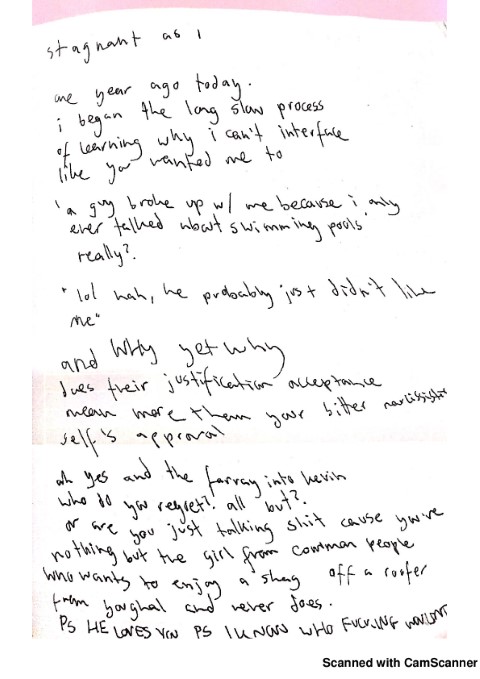 stagnant as i
one year ago today.
i began the long slow process
of learning why i can't interface
like you wanted me to
'a guy broke up w/ me because i only
ever talked about swimming pools'
really?.
"lol nah, he probably just didn't like
me"
and Why yet why
does their justification acceptance
mean more them your bitter narcissistic
self's approval
ah yes and the farray into kevin
who do you regret? all but?.
or are you just talking shit cause you're
nothing but the girl from common people
who wants to enjoy a shag off a roofer
from youghal and never does.
PS HE LOVES YOU PS I KNOW WHO FUCKING WOULDNT
Scanned with CamScanner